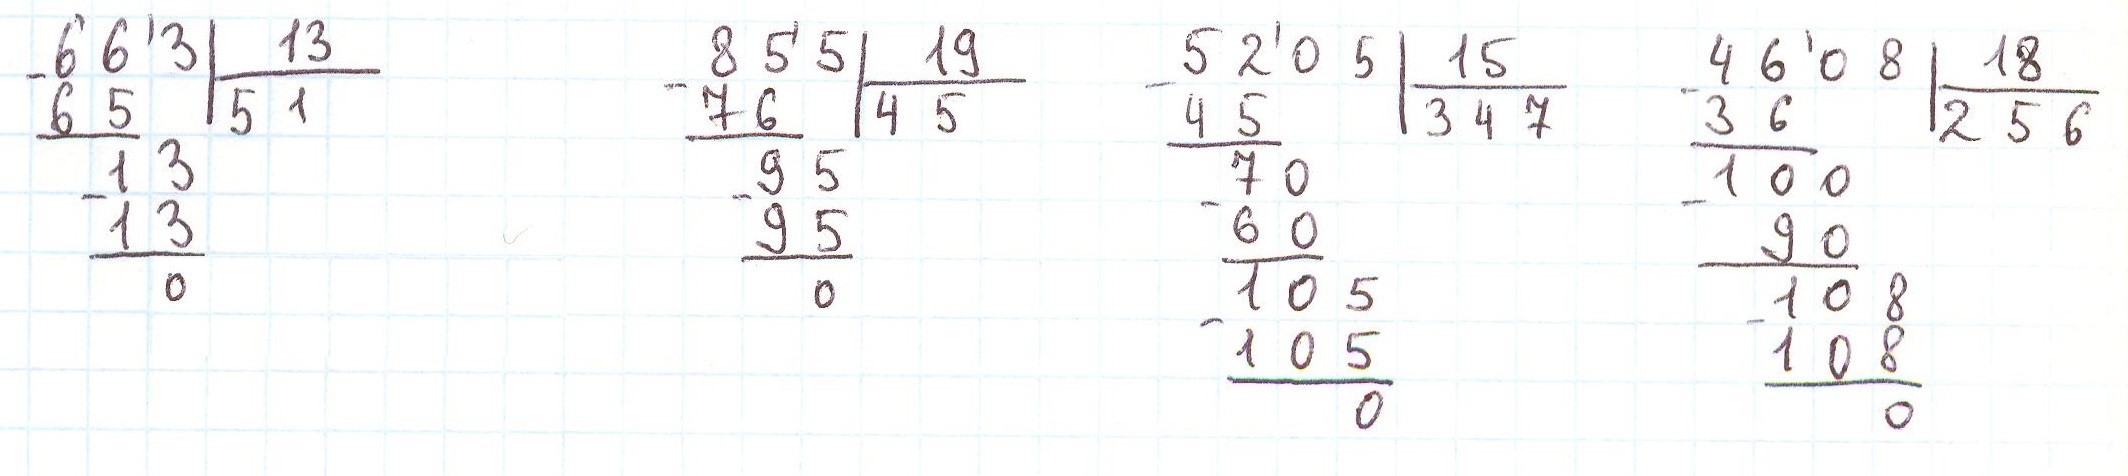 66'3 13
- 65 51
13
- 13
0
85'5 19
- 76 45
95
- 95
0
52'05 15
- 45 347
70
- 60
105
- 105
0
46'08 18
- 36 256
100
- 90
108
- 108
0